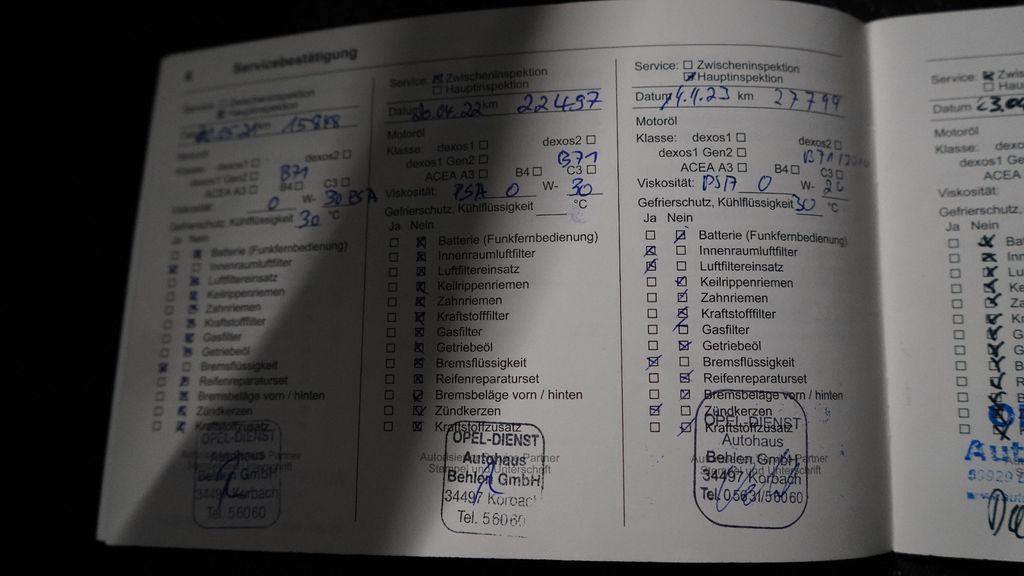 Servicebestätigung
Service: Zwischeninspektion
Hauptinspektion
km 15848
Motoröl
dexos1 dexos2
dexos1 Gen2 B71
ACEA A3 B4 C3
Viskosität: 0 W- 30 PSA
Gefrierschutz, Kühlflüssigkeit 30 °C
Ja Nein
Batterie (Funkfernbedienung)
Innenraumluftfilter
Luftfiltereinsatz
Keilrippenriemen
Zahnriemen
Kraftstofffilter
Gasfilter
Getriebeöl
Bremsflüssigkeit
Reifenreparaturset
Bremsbeläge vorn / hinten
Zündkerzen
Kraftstoffzusatz
OPEL-DIENST
Autohaus
Behlen GmbH
34497 Korbach
Tel. 56060
Service: Zwischeninspektion
Hauptinspektion
Datum 20.04.22 km 22497
Motoröl
Klasse: dexos1 dexos2
dexos1 Gen2 B71
ACEA A3 B4 C3
Viskosität: PSA 0 W- 30
Gefrierschutz, Kühlflüssigkeit °C
Ja Nein
Batterie (Funkfernbedienung)
Innenraumluftfilter
Luftfiltereinsatz
Keilrippenriemen
Zahnriemen
Kraftstofffilter
Gasfilter
Getriebeöl
Bremsflüssigkeit
Reifenreparaturset
Bremsbeläge vorn / hinten
Zündkerzen
Kraftstoffzusatz
Autorisierter Partner
Stempel und Unterschrift
OPEL-DIENST
Autohaus
Behlen GmbH
34497 Korbach
Tel. 56060
Service: Zwischeninspektion
Hauptinspektion
Datum km 27799
Motoröl
Klasse: dexos1 dexos2
dexos1 Gen2 B71
ACEA A3 B4 C3
Viskosität: PSA 0 W-
Gefrierschutz, Kühlflüssigkeit 30 °C
Ja Nein
Batterie (Funkfernbedienung)
Innenraumluftfilter
Luftfiltereinsatz
Keilrippenriemen
Zahnriemen
Kraftstofffilter
Gasfilter
Getriebeöl
Bremsflüssigkeit
Reifenreparaturset
Bremsbeläge vorn / hinten
Zündkerzen
Kraftstoffzusatz
Partner
Stempel und Unterschrift
OPEL-DIENST
Autohaus
Behlen GmbH
34497 Korbach
Tel. 05631/56060
Service: Zwi
Hau
Datum
Motoröl
Klasse: dexo
dexos1 Ge
ACEA
Viskosität:
Gefrierschutz,
Ja Nein
Aut